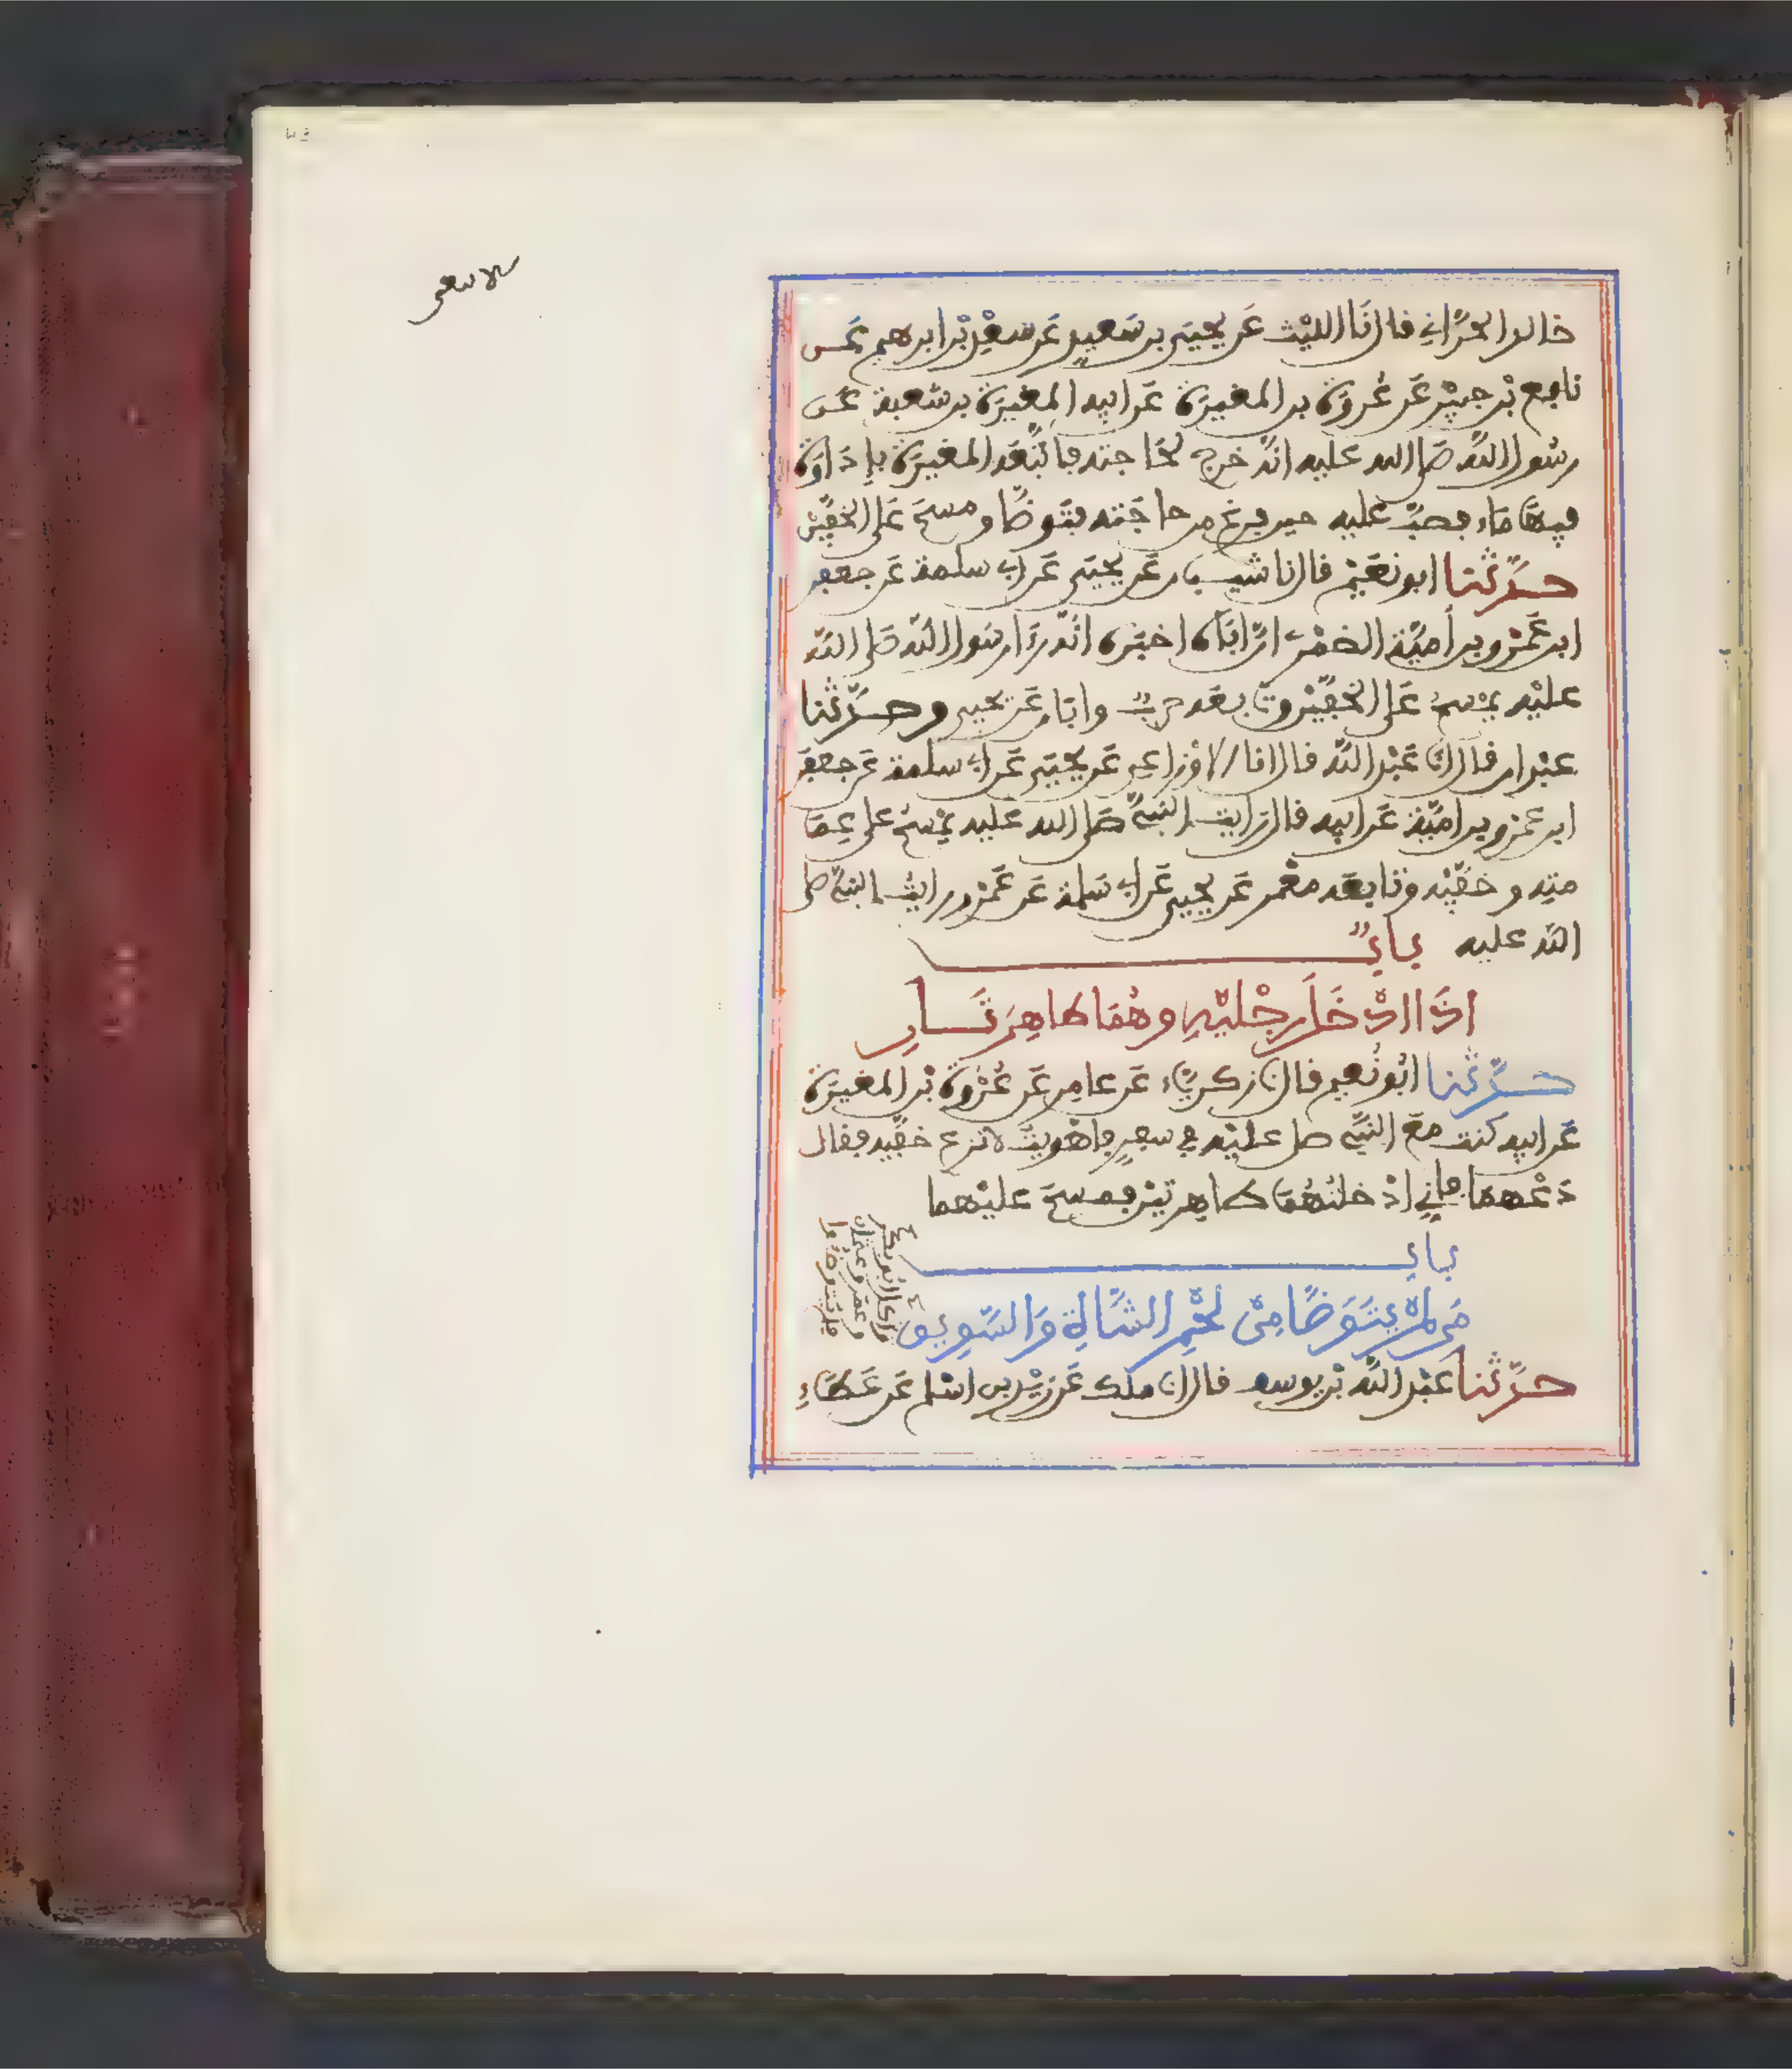 خالد الحرّاني قال نا الليث عن يحيى بن سعيد عن سعد بن ابراهيم عن
نافع بن جبير عن عروة بن المغيرة عن ابيه المغيرة بن شعبة عن
رسول الله صلى الله عليه انه خرج لحاجته فاتبعه المغيرة بإداوة
فيها ماء فصب عليه حين فرغ من حاجته فتوضأ ومسح على الخفين
حدثنا ابو نعيم قال نا شيبان عن يحيى عن ابي سلمة عن جعفر
ابن عمرو بن أمية الضمري ان اباه اخبره انه رءا رسول الله صلى الله
عليه يمسح على الخفين وتابعه حرب وابان عن يحيى وحدثنا
عبدان قال نا عبد الله قال انا الاوزاعي عن يحيى عن ابي سلمة عن جعفر
ابن عمرو بن امية عن ابيه قال رايت النبي صلى الله عليه يمسح على عما
مته وخفيه وتابعه معمر عن يحيى عن ابي سلمة عن عمرو رايت النبي صلى
الله عليه باب
اذا ادخل رجليه وهما طاهرتان
حدثنا ابو نعيم قال نا زكرياء عن عامر عن عروة بن المغيرة
عن ابيه كنت مع النبي صلى عليه في سفر فاهويت لانزع خفيه فقال
دعهما فإني ادخلتهما طاهرتين فمسح عليهما
باب
من لم يتوضأ من لحم الشاة والسويق
واكل ابو بكر
وعمر وعثمان
فلم يتوضؤوا
حدثنا عبد الله بن يوسف قال نا ملك عن زيد بن اسلم عن عطاء